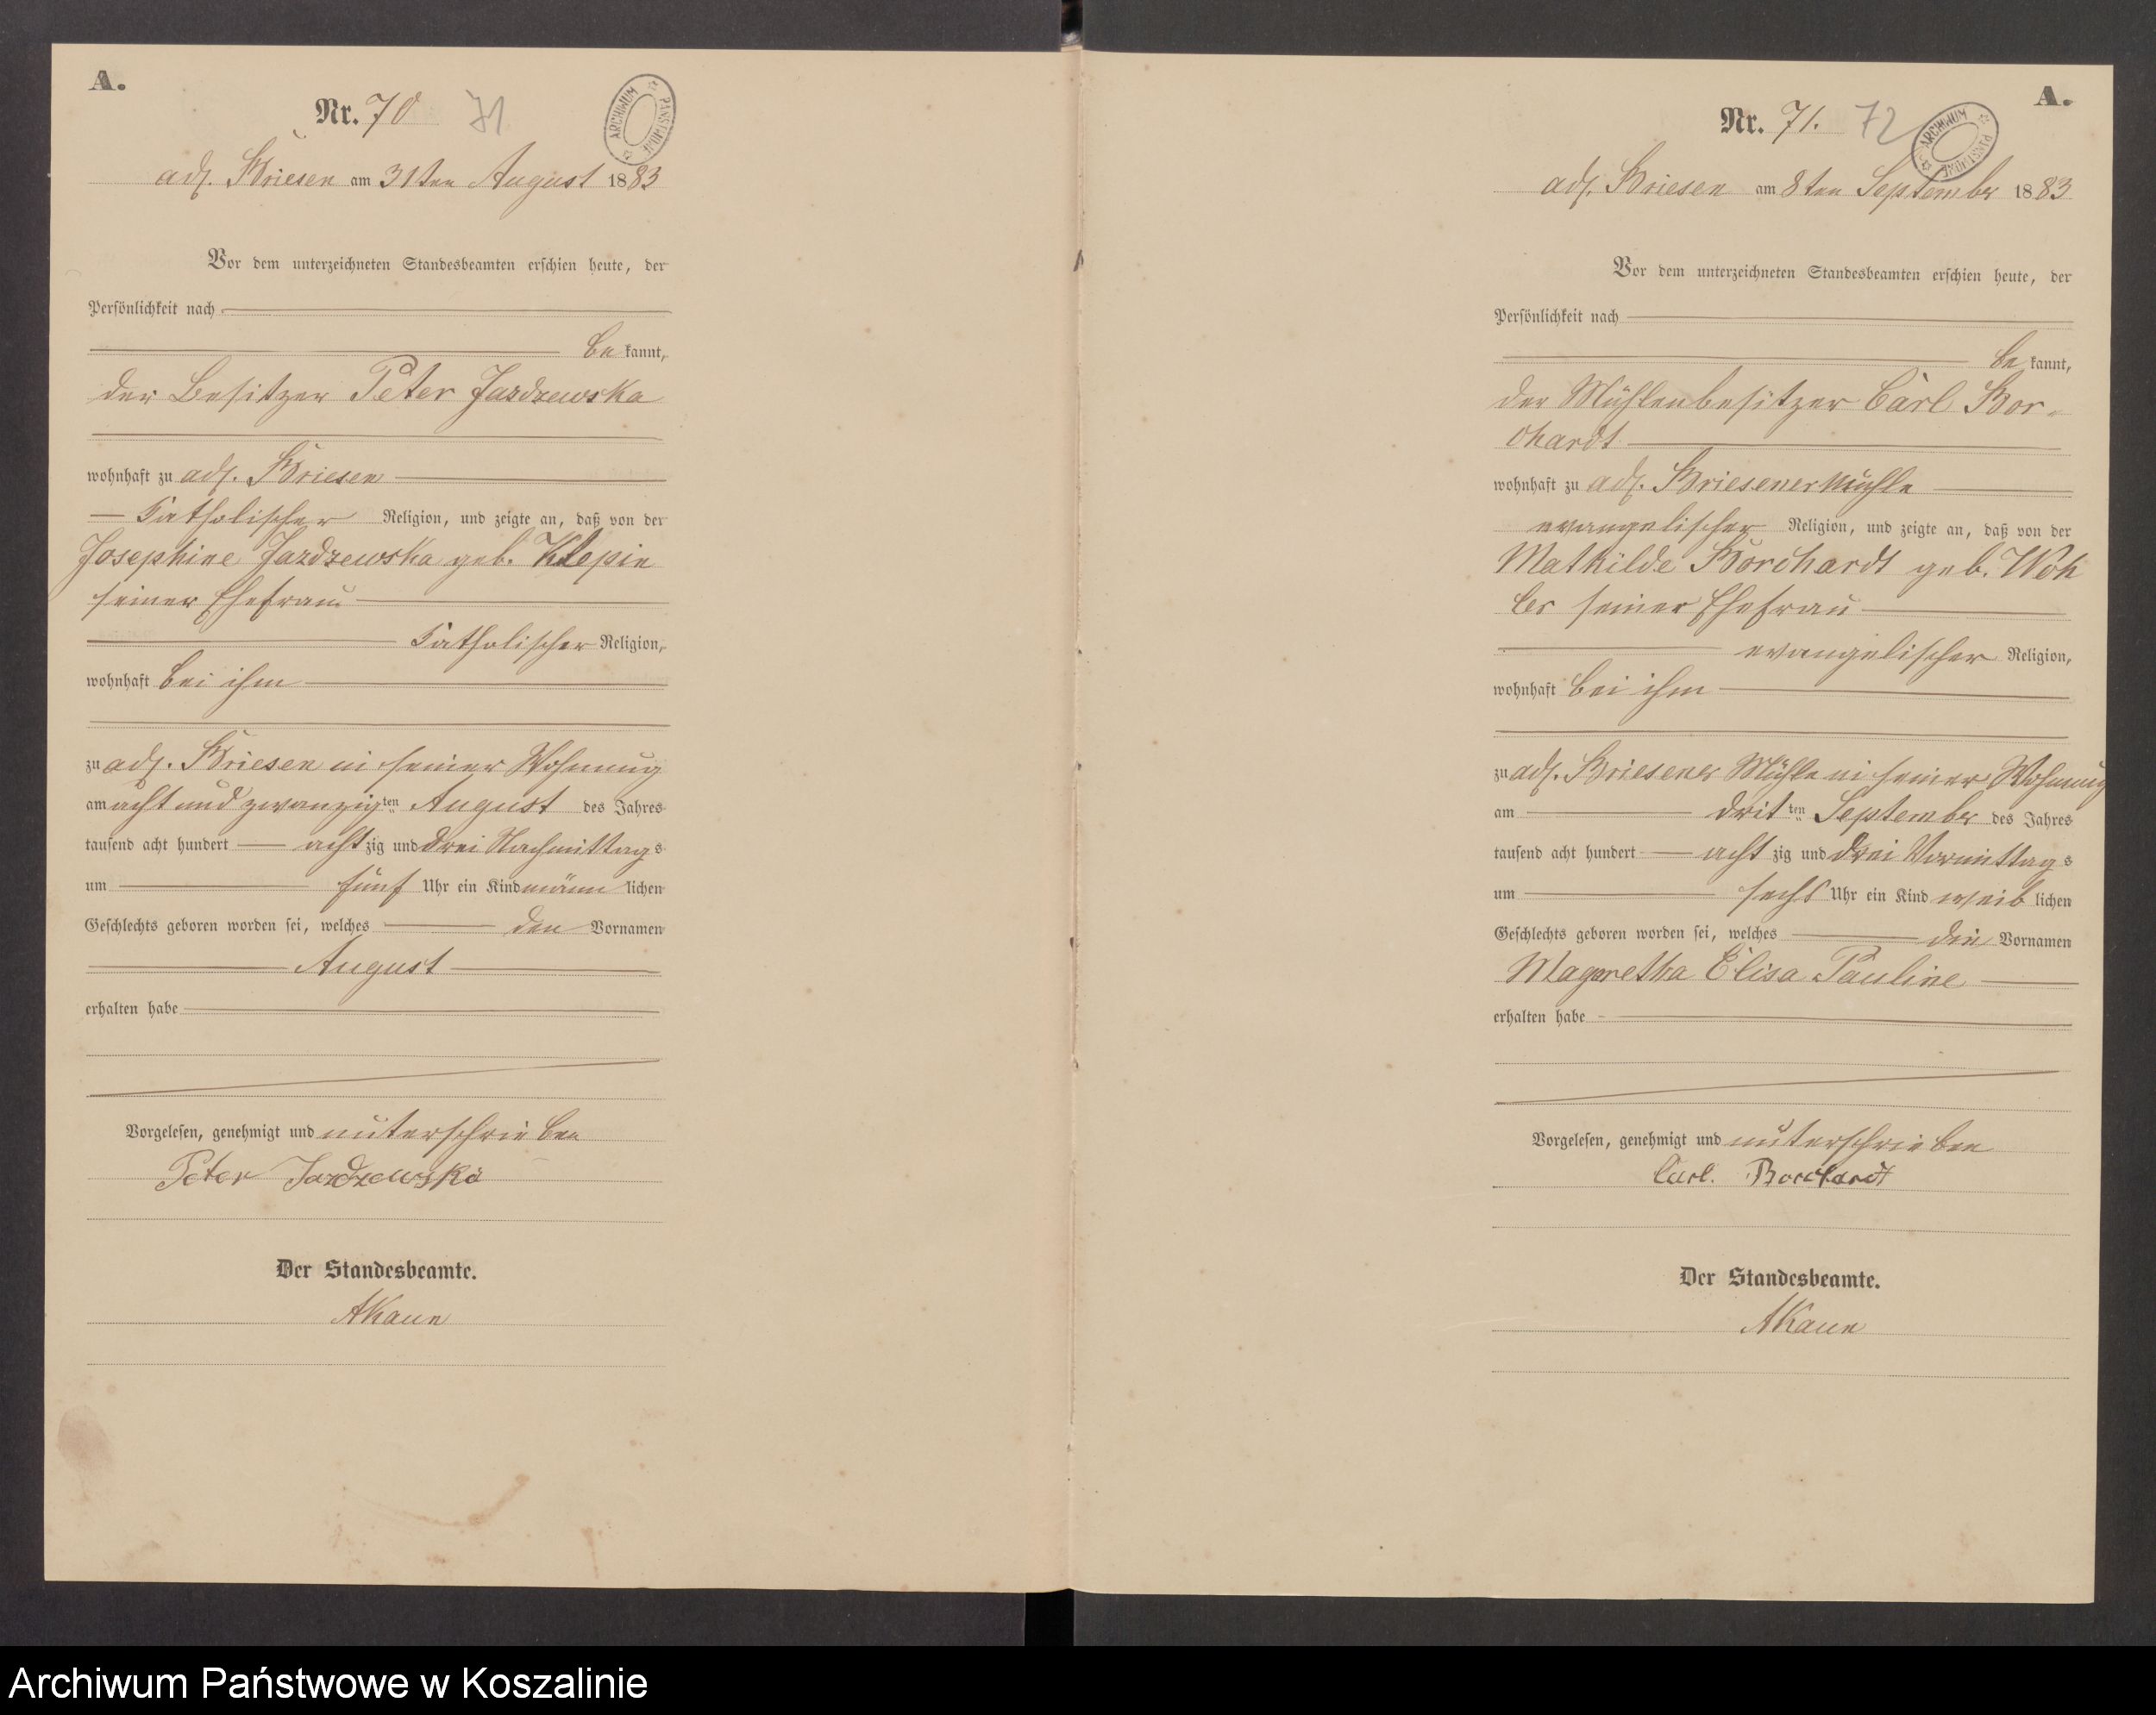 A.
Nr. 70 71
ARCHIWUM PAŃSTWOWE
adl. Briesen am 31ten August 1883
Vor dem unterzeichneten Standesbeamten erschien heute, der
Persönlichkeit nach
be kannt,
der Besitzer Peter Jazdzewska
wohnhaft zu adl. Briesen
katholischer Religion, und zeigte an, daß von der
Josephine Jazdzewska geb. Klepin
seiner Ehefrau
katholischer Religion,
wohnhaft bei ihm
zu adl. Briesen in seiner Wohnung
am acht und zwanzig ten August des Jahres
tausend acht hundert acht zig und drei Nachmittags
um fünf Uhr ein Kind männ lichen
Geschlechts geboren worden sei, welches den Vornamen
August
erhalten habe
Vorgelesen, genehmigt und unterschrieben
Peter Jazdzewska
Der Standesbeamte.
AKaun
A.
Nr. 71. 72
ARCHIWUM PAŃSTWOWE
adl. Briesen am 8ten September 1883
Vor dem unterzeichneten Standesbeamten erschien heute, der
Persönlichkeit nach
be kannt,
der Mühlenbesitzer Carl Bor-
chardt
wohnhaft zu adl. Briesener Mühle
evangelischer Religion, und zeigte an, daß von der
Mathilde Borchardt geb. Woh
ler seiner Ehefrau
evangelischer Religion,
wohnhaft bei ihm
zu adl. Briesener Mühle in seiner Wohnung
am drit ten September des Jahres
tausend acht hundert acht zig und drei Vormittags
um sechs Uhr ein Kind weib lichen
Geschlechts geboren worden sei, welches die Vornamen
Magaretha Elisa Pauline
erhalten habe
Vorgelesen, genehmigt und unterschrieben
Carl. Borchardt
Der Standesbeamte.
AKaun
Archiwum Państwowe w Koszalinie